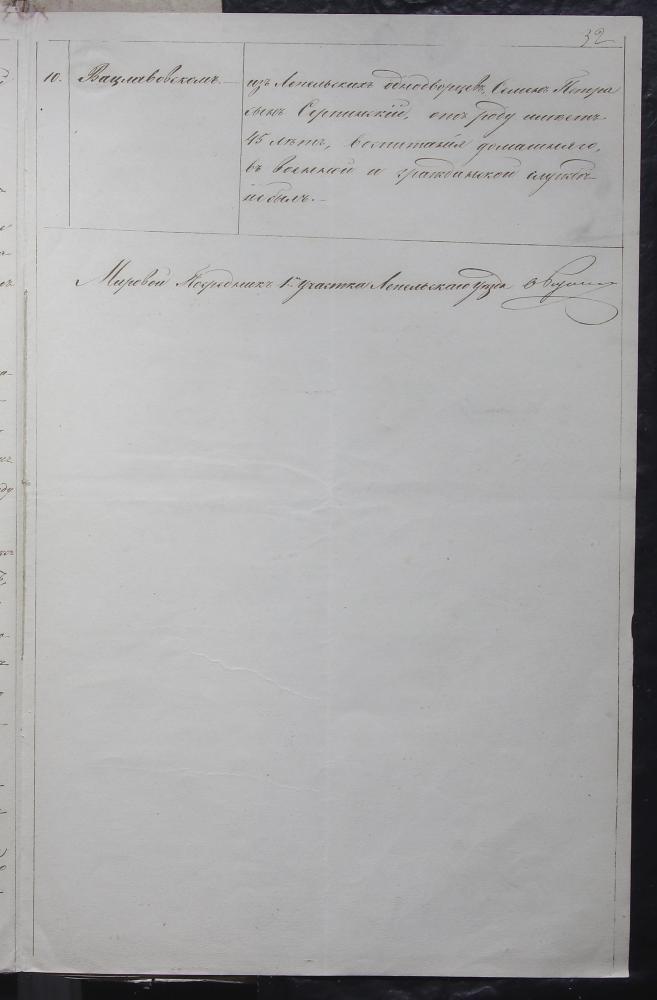 32
10. Вацлавовскомъ. — изъ Лепельскихъ однодворцевъ, Семенъ Петра
сынъ Сертинскій, отъ роду имѣетъ
45 лѣтъ, воспитанія домашняго,
въ военной и гражданской службѣ
не былъ. —
Мировой Посредникъ 1го участка Лепельскаго уѣзда